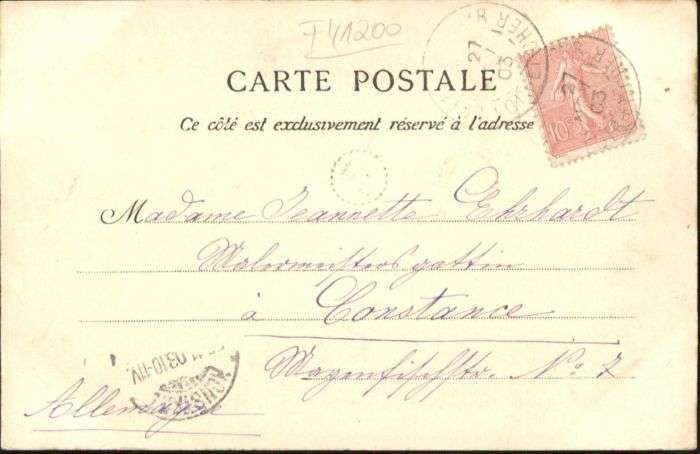 I41200
CARTE POSTALE
Ce côté est exclusivement réservé à l'adresse
27
03
27
03
10
Madame Jeannette Ehrhardt
Malermeistersgattin
à Constance
Wagenfischstr. No 7
Allemagne
03.10-11V.